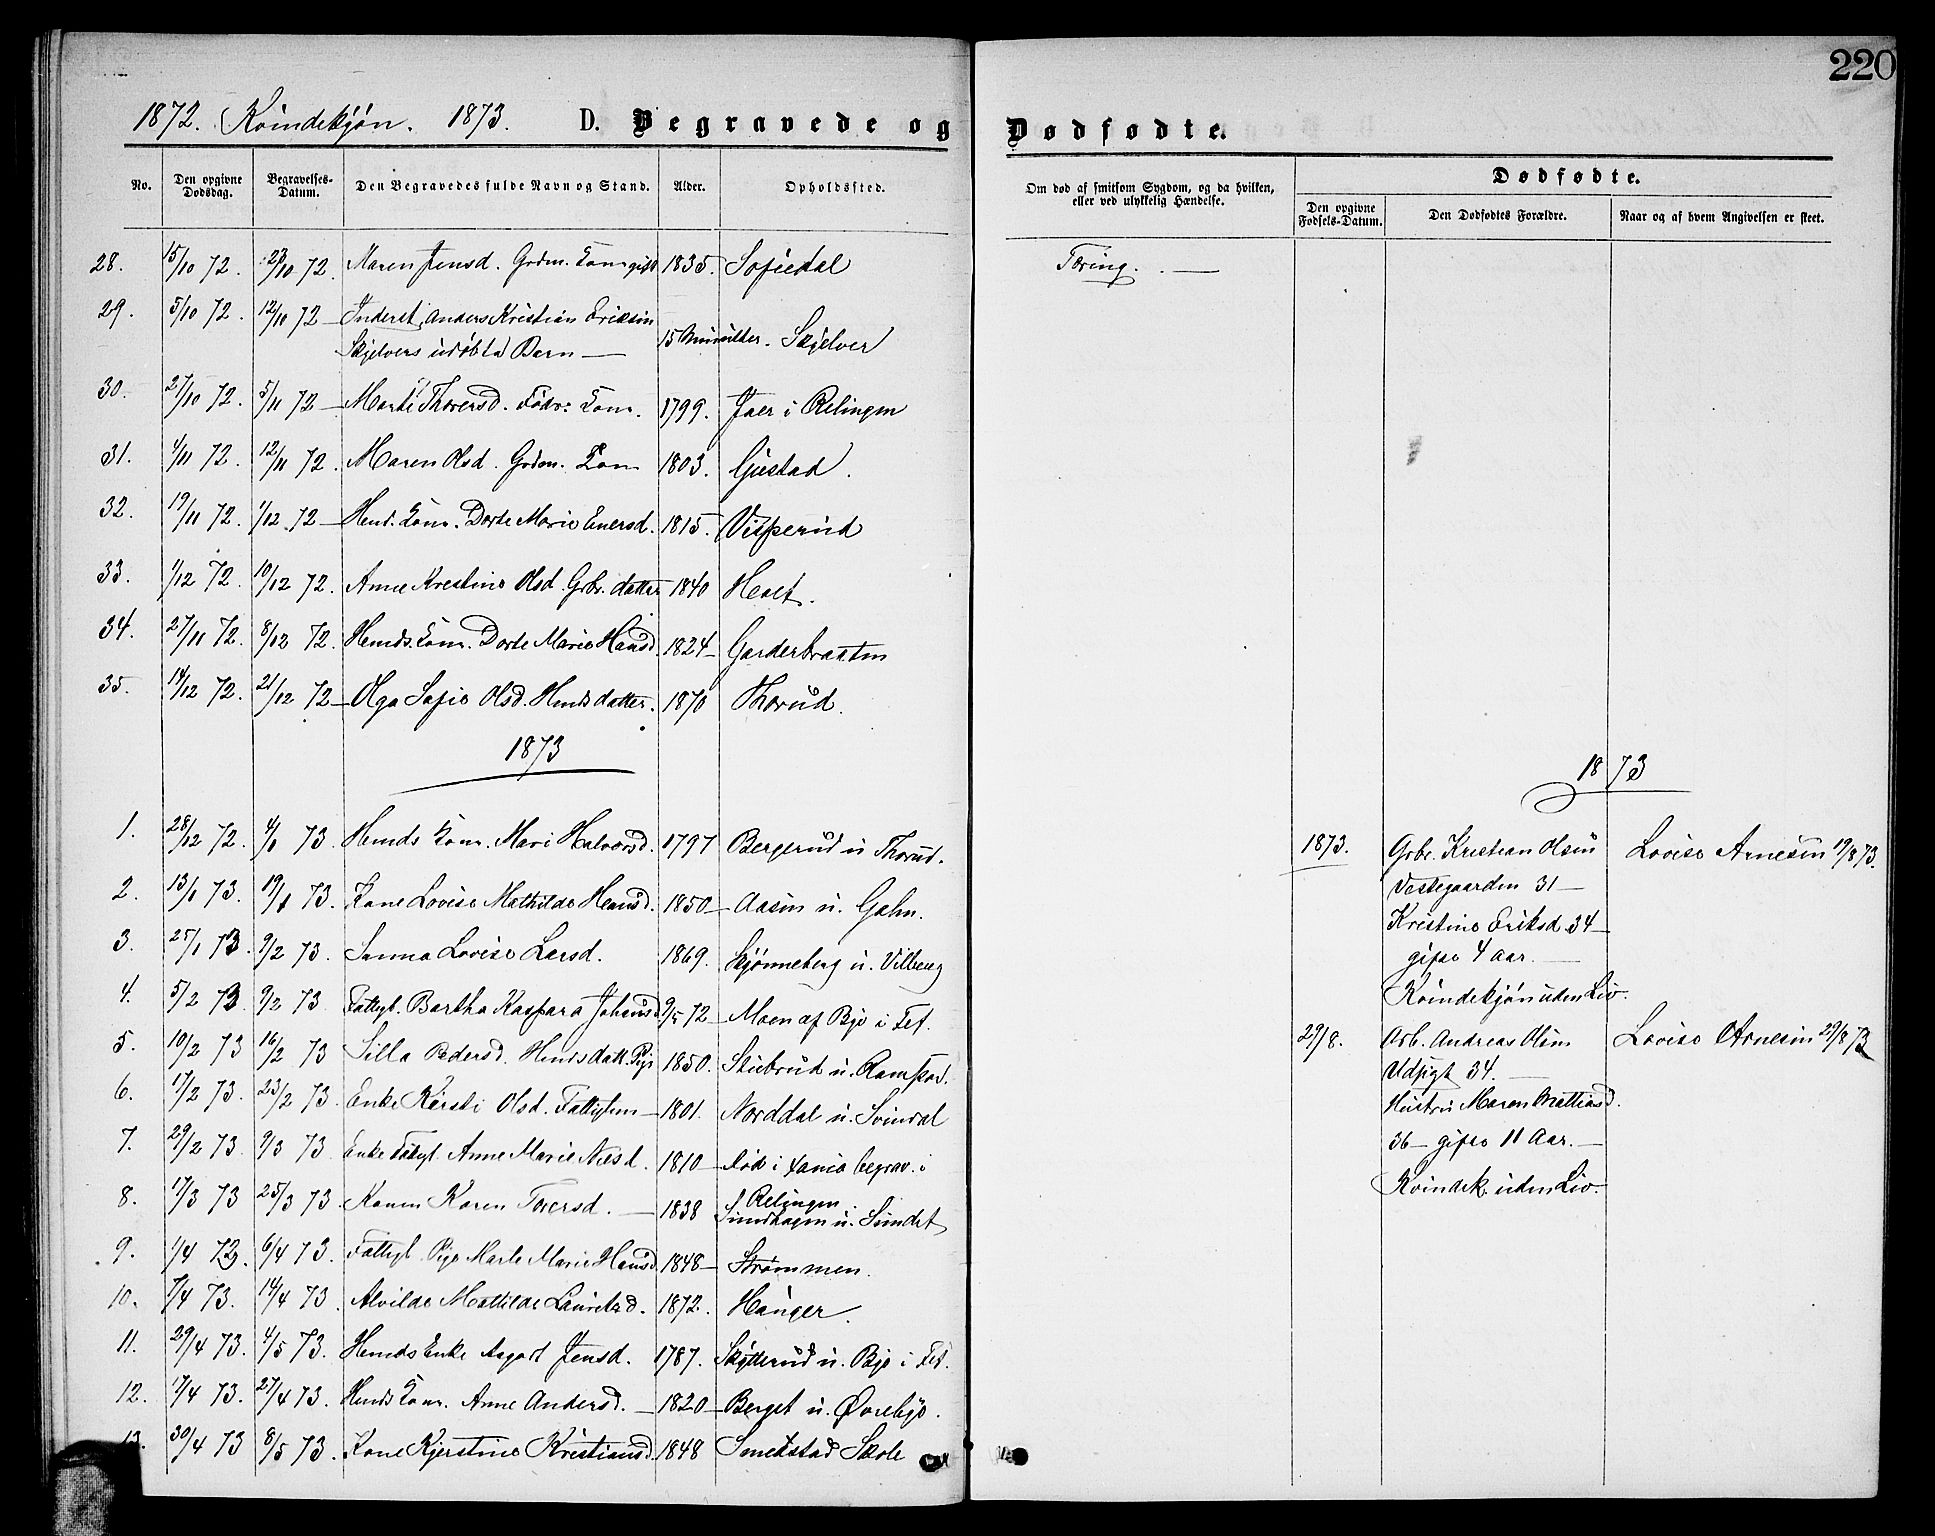 220
1872. Kvindekjøn. 1873. D. Begravede og Dødfødte.
No. Den opgivne Dødsdag. Begravelses-Datum. Den Begravedes fulde Navn og Stand. Alder. Opholdssted.
Om død af smitsom Sygdom, og da hvilken, eller ved ulykkelig Hændelse.
Dødfødte.
Den opgivne Fødsels-Datum. Den Dødfødtes Forældre. Naar og af hvem Angivelsen er skeet.
28. 15/10 72. 23/10 72. Maren Jensd. Grdm. Kone gift 1835. Sofiedal Tæring. —
29. 5/10 72. 12/10 72 — Inderst Anders Kristian Eriksen
Skjelvers udøbte Barn — 15 Minutter. Skjelver
30. 27/10 72. 5/11 72 — Marte Thorersd. Födr: Kone. 1799. Jaer i Relingen
31. 4/11 72. 12/11 72. Maren Olsd. Grdm. Kone 1803. Gustad.
32. 19/11 72. 1/12 72 — Hmd. Kone. Dorte Marie Enersd. 1815. Visperud
33. 1/12 72. 10/12 72. Anne Krestine Olsd. Grbr. datter 1840 Holt.
34. 27/11 72. 8/12 72. Hmds. Kone. Dorte Marie Hansd. 1824 — Garderbraaten
35. 14/12 72. 21/12 72 — Olga Sofie Olsd. Hmds datter. 1870 Thorud.
1873
1. 28/12 72. 4/1 73. Hmds Kone. Mari Halvorsd. 1797 Bergerud u Thorud.
2. 13/1 73. 19/1 73. Kone Lovise Mathilde Hansd. 1850 — Aasen u. Gahn.
3. 25/1 73. 9/2 73. Sanna Lovise Larsd. 1869. Skjønneberg u. Vilberg
4. 5/2 73. 9/2 73. Fattigl. Bertha Kaspara Johansd 9/5 72 — Moen af Bjo i Fet.
5. 10/2 73 16/2 73 Silla Pedersd. Hmds datt. Pige 1850. Stubrud u. Ramstad.
6. 17/2 73. 23/2 73. Enke Kersti Olsd. Fattiglem — 1801. Norddal u. Svindal
7. 29/2 73. 9/3 73. Enke Fattigl. Anne Marie Nilsd. 1810 — død i Xania begrav. i
Relingen.
8. 17/3 73 25/3 73. Konen Karen Torersd. — 1838 Sundhagen u. Sundet
9. 1/4 73. 6/4 73. Fattigl Pige Marte Marie Hansd. 1848 — Strømmen.
10. 7/4 73. 14/4 73. Alvilde Mattilde Lauritzd. 1872. Hauger.
11. 29/4 73. 4/5 73. Hmds Enke Asgort Jensd. 1787. Skytterud u. Bjo i Fet.
12. 17/4 73. 27/4 73. Hmds Kone. Anne Andersd. — 1820 — Berget u. Øvrebyo.
13. 30/4 73 8/5 73. Kone Kjerstine Kristiansd. 1848 Smedstad Skole
1873
1873. Grbr. Kristian Olsen Lovise Arnesen 19/8 73.
Vestegaarden 31 —
Kristine Eriksd 34 —
gifte 4 Aar. —
Kvindekjøn uden Liv.
29/8. Arb. Andreas Olsen Lovise Arnesen 29/8 73
Udsigt 34. —
Hustru Maren Mathiasd.
36 — gifte 11 Aar. —
Kvindek. uden Liv.